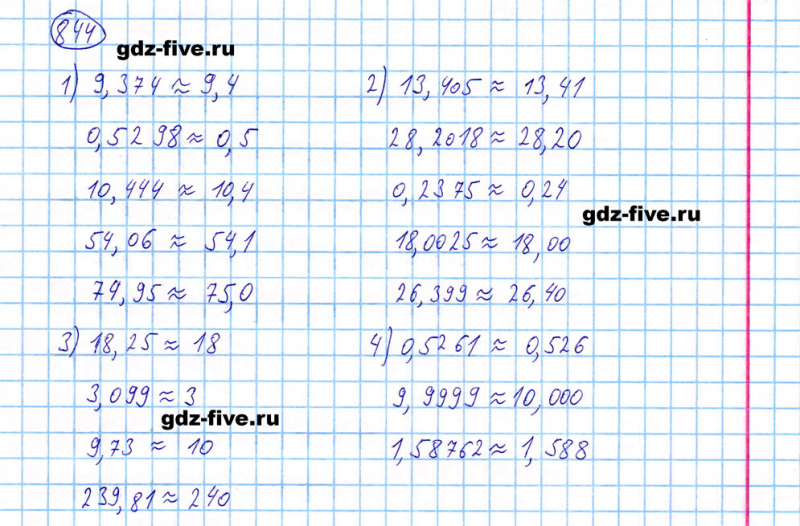 844
gdz-five.ru
1) 9,374 ≈ 9,4
0,5298 ≈ 0,5
10,444 ≈ 10,4
54,06 ≈ 54,1
74,95 ≈ 75,0
2) 13,405 ≈ 13,41
28,2018 ≈ 28,20
0,2375 ≈ 0,24
gdz-five.ru
18,0025 ≈ 18,00
26,399 ≈ 26,40
3) 18,25 ≈ 18
3,099 ≈ 3
gdz-five.ru
9,73 ≈ 10
239,81 ≈ 240
4) 0,5261 ≈ 0,526
9,9999 ≈ 10,000
1,58762 ≈ 1,588